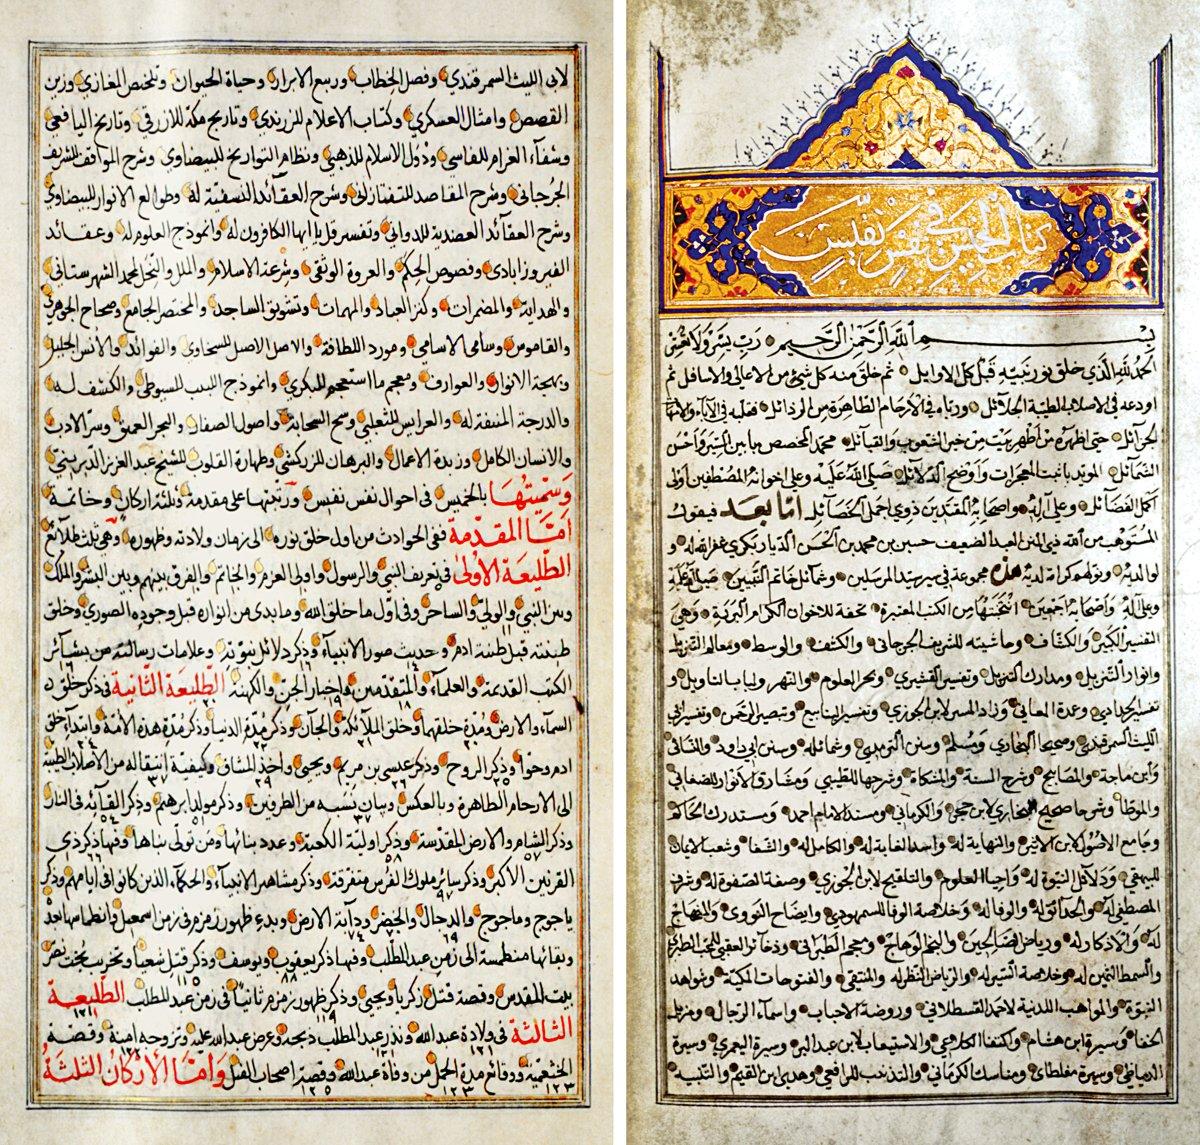 كتاب الخميس في نفس نفيس
بسم الله الرحمن الرحيم رب يسر ولا تعسر
الحمد لله الذي خلق نور نبيه قبل كل الاوايل ثم خلق منه كل شيء من الاعالي والاسافل ثم
اودعه في الاصلاب الطيبة الجلائل ورباه في الارحام الطاهرة من الرذائل فقلبه في الآباء والامهات
الخيرائل حتى اظهره من اطهر بيت من خير الشعوب والقبائل محمد المخصص من بين واحسن
الشمائل المؤيد باثبت المعجزات واوضح الدلائل صلى الله عليه وعلى اخوانه المصطفين اولى
اكمل الفضائل وعلى آله واصحابه المقتدين ذوي اجمل الخصائل اما بعد فيقول
المستوهب من الله ذي المنن العبد الضعيف حسين بن محمد بن الحسن الديار بكري غفر الله له و
لوالديه هذه مجموعة في سير سيد المرسلين وشمائل خاتم النبيين صلى الله عليه
وعلى آله واصحابه اجمعين انتخبتها من الكتب المعتبرة تحفة للاخوان الكرام البررة وهي
التفسير الكبير والكشاف وحاشيته للشريف الجرجاني والكشف والوسيط ومعالم التنزيل
وانوار التنزيل ومدارك التنزيل وتفسير القشيري وبحر العلوم والنهر ولباب التاويل و
تفسير وعدة المعاني وزاد المسير لابن الجوزي وتفسير الينابيع وتبصير الرحمن وتفسير ابي
الليث السمرقندي وصحيحا البخاري ومسلم وسنن الترمذي وشمائله وسنن ابي داود والنسائي
وابن ماجة والمصابيح وشرح السنة والمشكاة وشرحها للطيبي ومشارق الانوار للصغاني
والموطأ وشرحا صحيح البخاري لابن حجر والكرماني ومسند الامام احمد ومستدرك الحاكم
وجامع الاصول لابن الاثير والنهاية له واسد الغابة له والكامل له والشفا وشعب الايمان
للبيهقي ودلائل النبوة له واحيا العلوم والتلقيح لابن الجوزي وصفة الصفوة له وشرف
المصطفى له والحدائق له والوفا له وخلاصة الوفا للسمهودي وايضاح النووي والمنهاج
له والاذكار له ورياض الصالحين والنجم الوهاج ومعجم الطبراني وذخائر العقبى للمحب الطبري
والسمط الثمين له وخلاصة السير له والرياض النضرة له والمنتقى والفتوحات المكية وشواهد
النبوة والمواهب اللدنية لاحمد القسطلاني وروضة الاحباب واسماء الرجال ومزيل
الخفا وسيرة ابن هشام واكتفاء الكلاعي والاستيعاب لابن عبد البر وسيرة اليعمري وسيرة
الدمياطي وسيرة مغلطاي ومناسك الكرماني والتذنيب للرافعي وهدي ابن القيم والتنبيه
لابي الليث السمرقندي وفصل الخطاب وربيع الابرار وحياة الحيوان وتلخيص المغازي وزين
القصص وامثال العسكري وكتاب الاعلام للزرندي وتاريخ مكة للازرقي وتاريخ اليافعي
وشفاء الغرام للفاسي ودول الاسلام للذهبي ونظام التواريخ للبيضاوي وشرح المواقف للشريف
الجرجاني وشرح المقاصد للتفتازاني وشرح العقائد النسفية له وطوالع الانوار للبيضاوي
وشرح العقائد العضدية للدواني وتفسير قل يا ايها الكافرون له وانموذج العلوم له وعقائد
الفيروزابادي وفصوص الحكم والعروة الوثقى وشرعة الاسلام والملل والنحل لمحمد الشهرستاني
والهداية والمضمرات وكنز العباد والمهمات وتشويق الساجد والمختصر الجامع وصحاح الجوهري
والقاموس وسامي الاسامي ومورد اللطافة والاصل الاصيل للسخاوي والفوائد والانس الجليل
وبهجة الانوار والعوارف ومعجم ما استعجم للبكري وانموذج اللبيب للسيوطي والكشف له
والدرجة المنيفة له والعرايس للثعلبي وسح السحابة واصول الصفار والبحر العميق وسر الادب
والانسان الكامل وزبدة الاعمال والبرهان للزركشي وطهارة القلوب للشيخ عبد العزيز الديريني
وسميتها بالخميس في احوال نفس نفيس ورتبتها على مقدمة وثلثة اركان وخاتمة
اما المقدمة ففي الحوادث من اول خلق نوره الى زمان ولادته وظهوره وهي ثلث طلائع
الطليعة الاولى في تعريف النبي والرسول واولي العزم والخاتم والفرق بينهم وبين البشر والملك
وبين النبي والولي والساحر وفي اول ما خلق الله وما بدى من انواره قبل وجوده الصوري وخلق
طينته قبل طينة ادم وحديث صور الانبياء وذكر دلائل نبوته وعلامات رسالته من بشائر
الكتب القديمة والعلماء والمتقدمين واخبار الجن والكهنة الطليعة الثانية في ذكر خلق
السماء والارض ومدة خلقهما وخلق الملائكة والجان وذكر مدة الدنيا وذكر مدة هذه الامة وابتداء خلق
ادم وحوا وذكر الروح وذكر عيسى بن مريم ويحيى واخذ الميثاق وكيفية انتقاله من الاصلاب الطيبة
الى الارحام الطاهرة وبالعكس وبيان نسبه من الطرفين وذكر مولد ابرهيم وذكر القائه في النار
وذكر الشام والارض المقدسة وذكر اولية الكعبة وعدد بنائها ومن تولى بناها وفيها ذكر ذي
القرنين الاكبر وذكر ساير ملوك الفرس متفرقة وذكر مشاهير الانبياء والحكماء الذين كانوا في ايامهم وذكر
ياجوج وماجوج والدجال والخضر ودابة الارض وبدء ظهور زمزم في زمن اسمعيل وانطماسها بعده
وبقائها منطمسة الى زمن عبد المطلب وفيها ذكر يعقوب ويوسف وذكر قتل شعيا وتخريب بخت نصر
بيت المقدس وقصة قتل زكريا ويحيى وذكر ظهور زمزم ثانيا في زمن عبد المطلب الطليعة
الثالثة في ولادة عبد الله ونذر عبد المطلب ذبحه وعرض عبد الله عليه وتزوجه امنة وقصة
الخثعمية ووقائع مدة الحمل من وفاة عبد الله وقصة اصحاب الفيل واما الاركان الثلثة